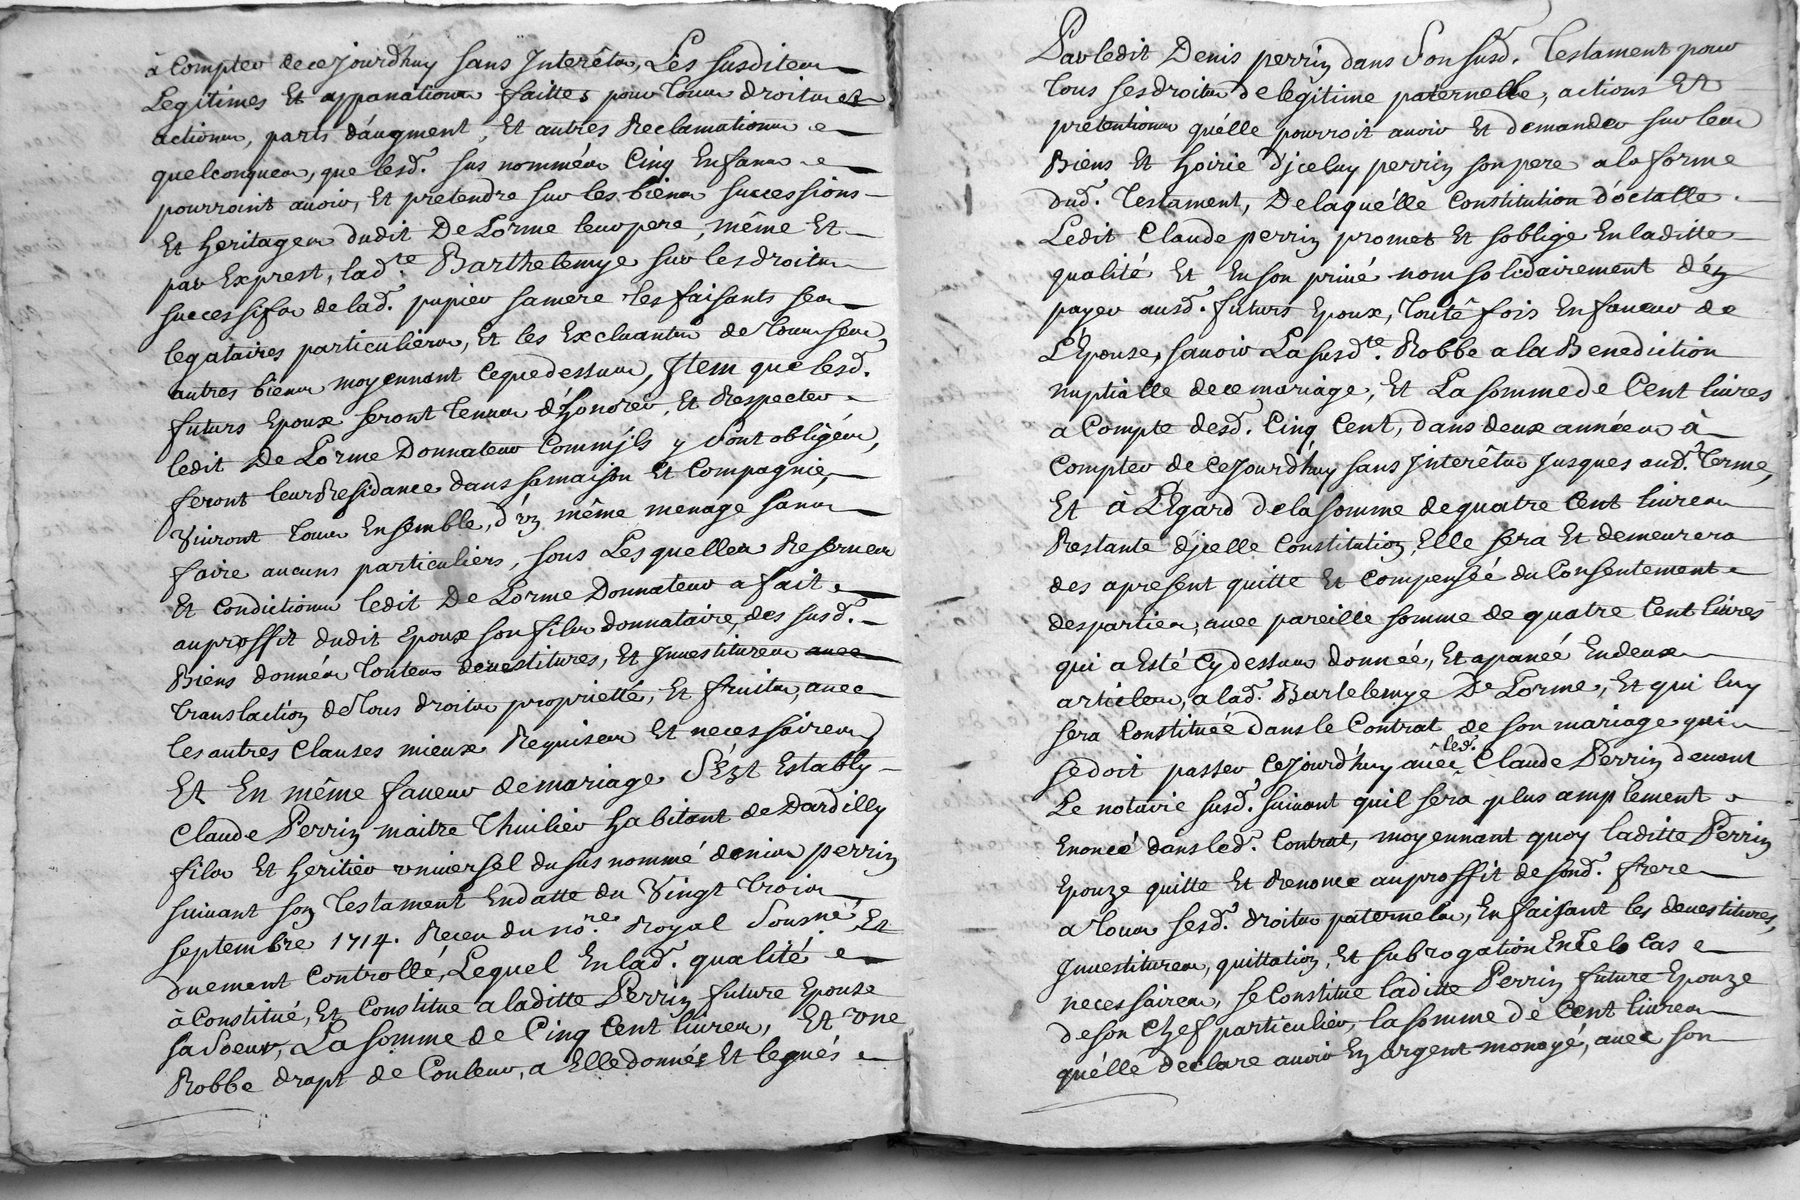 à Compter de ce Jourd'huy sans Interêts, Les susdites
Legitimes Et appanations faittes pour tous droits et
actions, parts d'augment, Et autres Reclamations
quelconques, que lesd. sus nommés Cinq Enfans
pourroint avoir, Et pretendre sur les biens successions
Et heritages dudit De Lorme leur pere, même Et
par Exprest, lad.te Barthelemye sur les droits
successifs de lad. pupier sa mere les faisants ses
legataires particuliers, Et les Excluants de tous ses
autres biens moyennant ce que dessus, Item que lesd.
futurs Epoux seront tenus d'honorer, Et Respecter
ledit De Lorme Donnateur Comm'jls y sont obligés,
feront leur Residance dans sa maison Et Compagnie,
Vivront tous Ensemble, d'un même menage sans
faire aucuns particuliers, sous Les quelles Reserves
Et Condictions ledit De Lorme Donnateur a fait
au proffit dudit Epoux son fils donnataire, des susd.
Biens donnés toutes devestitures, Et Investitures avec
translaction de tous droits proprietté, Et fruits, avec
les autres Clauses mieux Requises Et necessaires
Et En même faveur de mariage S'ést Estably
Claude Perrin maitre Thuilier habitant de Dardilly
fils Et heritier universel du sus nommé denis perrin
suivant son Testament En datte du Vingt trois
septembre 1714. Receu du no.re Royal Sousné, Et
duement Controllé, Lequel En lad. qualité
à Constitué, Et Constitue a laditte Perrin future Epouse
sa Soeur, La somme de Cinq Cent livres, Et une
Robbe drapt de Couleur, a Elle donnés Et legués
Par ledit Denis perrin dans Son susd. Testament pour
tous ses droits de legitime paternelle, actions Et
pretentions qu'élle pourroit avoir Et demander sur les
Biens Et Hoirie d'jceluy perrin son pere a la forme
dud. Testament, De laqu'élle Constitution dóctalle
Ledit Claude perrin promet Et soblige En laditte
qualité Et En son privé nom solidairement d'én
payer ausd. futurs Epoux, toute fois En faveur de
L'Epouse, savoir La susd.te Robbe a la Benediction
nuptialle de ce mariage, Et La somme de Cent livres
a Compte desd. Cinq Cent, dans deux années à
Compter de Cejourd'huy sans Interêts Jusques aud. terme,
Et à L'Egard de la somme de quatre Cent livres
Restante d'jcelle Constitution, Elle sera Et demeurera
des apresent quitte Et Compensée du Consentement
des parties, avec pareille somme de quatre Cent livres
qui a Esté Cy dessus donnée, Et apanée En deux
articles, a lad. Bartelemye De Lorme, Et qui luy
sera Constituée dans le Contrat de son mariage qui
se doit passer Cejourd'huy avec led. Claude Perrin devant
Le notaire susd. suivant quil sera plus amplement
Enoncé dans led. Contrat, moyennant quoy laditte Perrin
Epouze quitte Et Renonce au proffit de sond. frere
a tous sesd. droits paternels, En faisant les devestitures,
Investitures, quittation, Et subrogation En Tels Cas
necessaires, se Constitue laditte Perrin future Epouze
de son Chef particulier, la somme de Cent livres
qu'élle declare avoir En argent monoyé, avec son